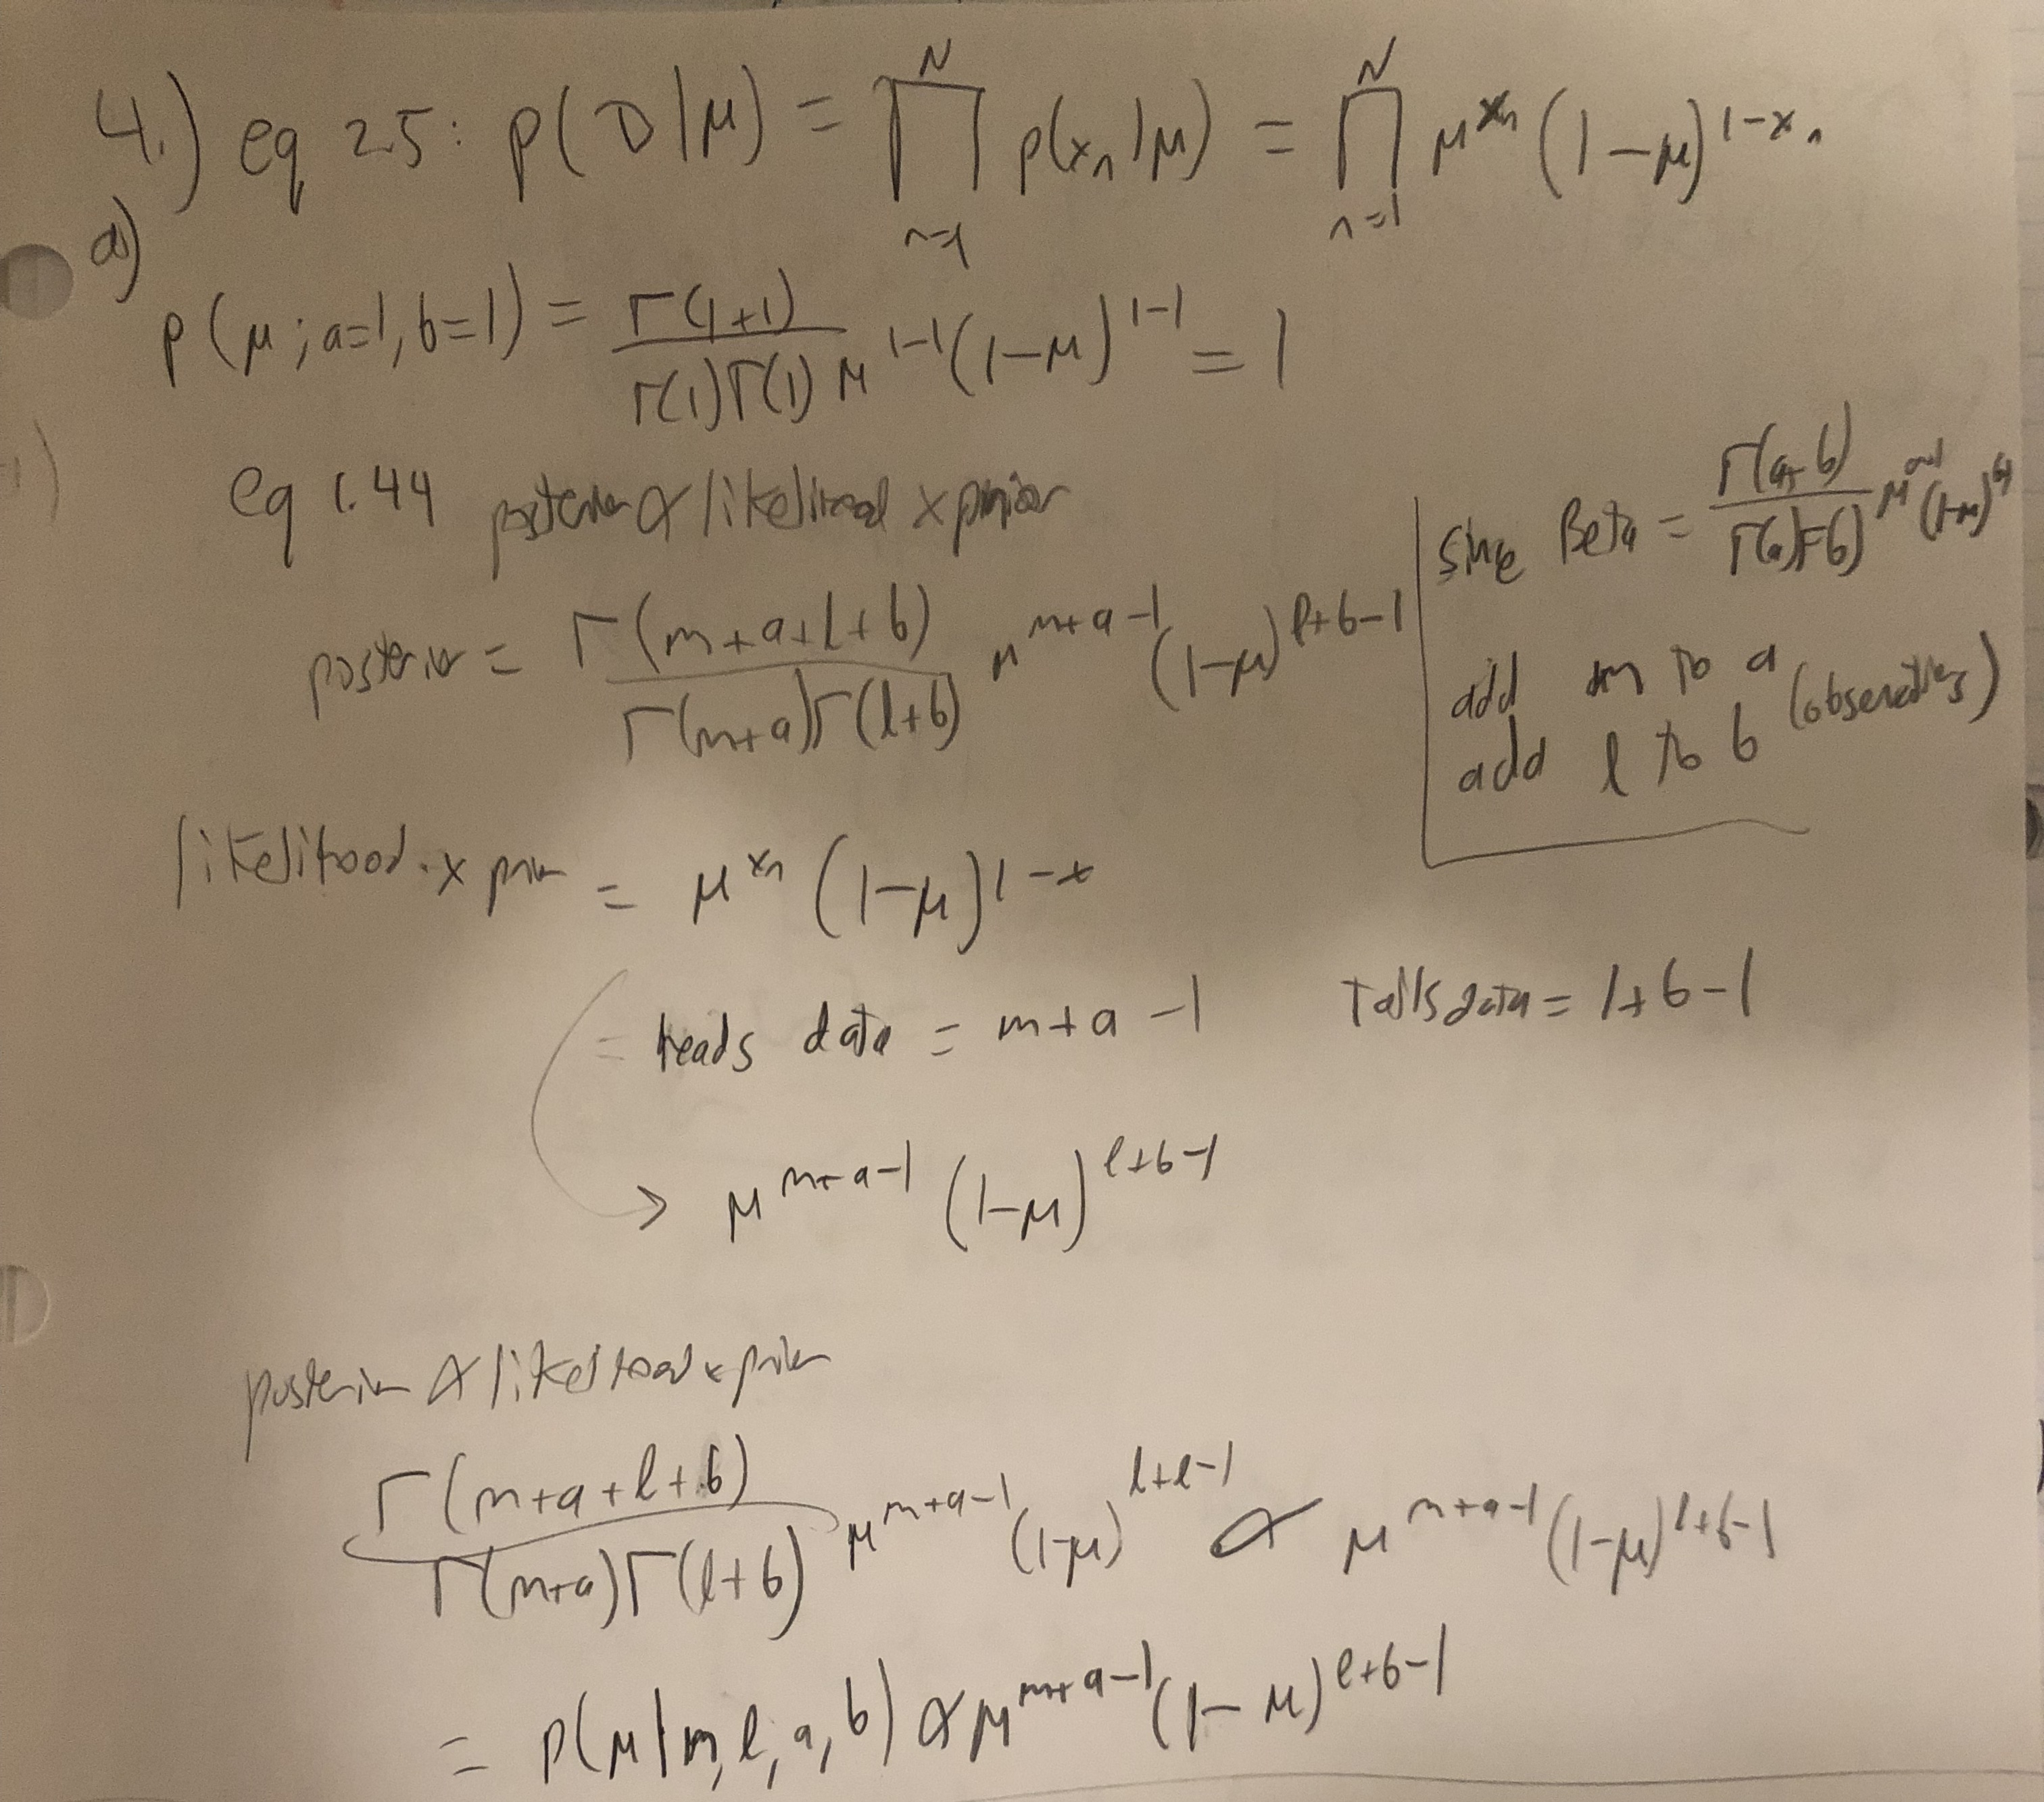 4.) eq 2.5: p(D|μ) = ∏_{n=1}^{N} p(x_n|μ) = ∏_{n=1}^{N} μ^{x_n} (1-μ)^{1-x_n}
a)
p(μ; a=1, b=1) = Γ(1+1) / Γ(1)Γ(1) μ^{1-1} (1-μ)^{1-1} = 1
eq 1.44 posterior ∝ likelihood x prior
posterior = Γ(m+a+l+b) / Γ(m+a)Γ(l+b) μ^{m+a-1} (1-μ)^{l+b-1}
since Beta = Γ(a+b) / Γ(a)Γ(b) μ^{a-1} (1-μ)^{b-1}
add m to a
add l to b (observations)
likelihood x prior = μ^{x_n} (1-μ)^{1-x}
= heads data = m+a-1 Tails data = l+b-1
→ μ^{m+a-1} (1-μ)^{l+b-1}
posterior ∝ likelihood x prior
Γ(m+a+l+b) / Γ(m+a)Γ(l+b) μ^{m+a-1} (1-μ)^{l+l-1} ∝ μ^{m+a-1} (1-μ)^{l+b-1}
= p(μ|m, l, a, b) ∝ μ^{m+a-1} (1-μ)^{l+b-1}